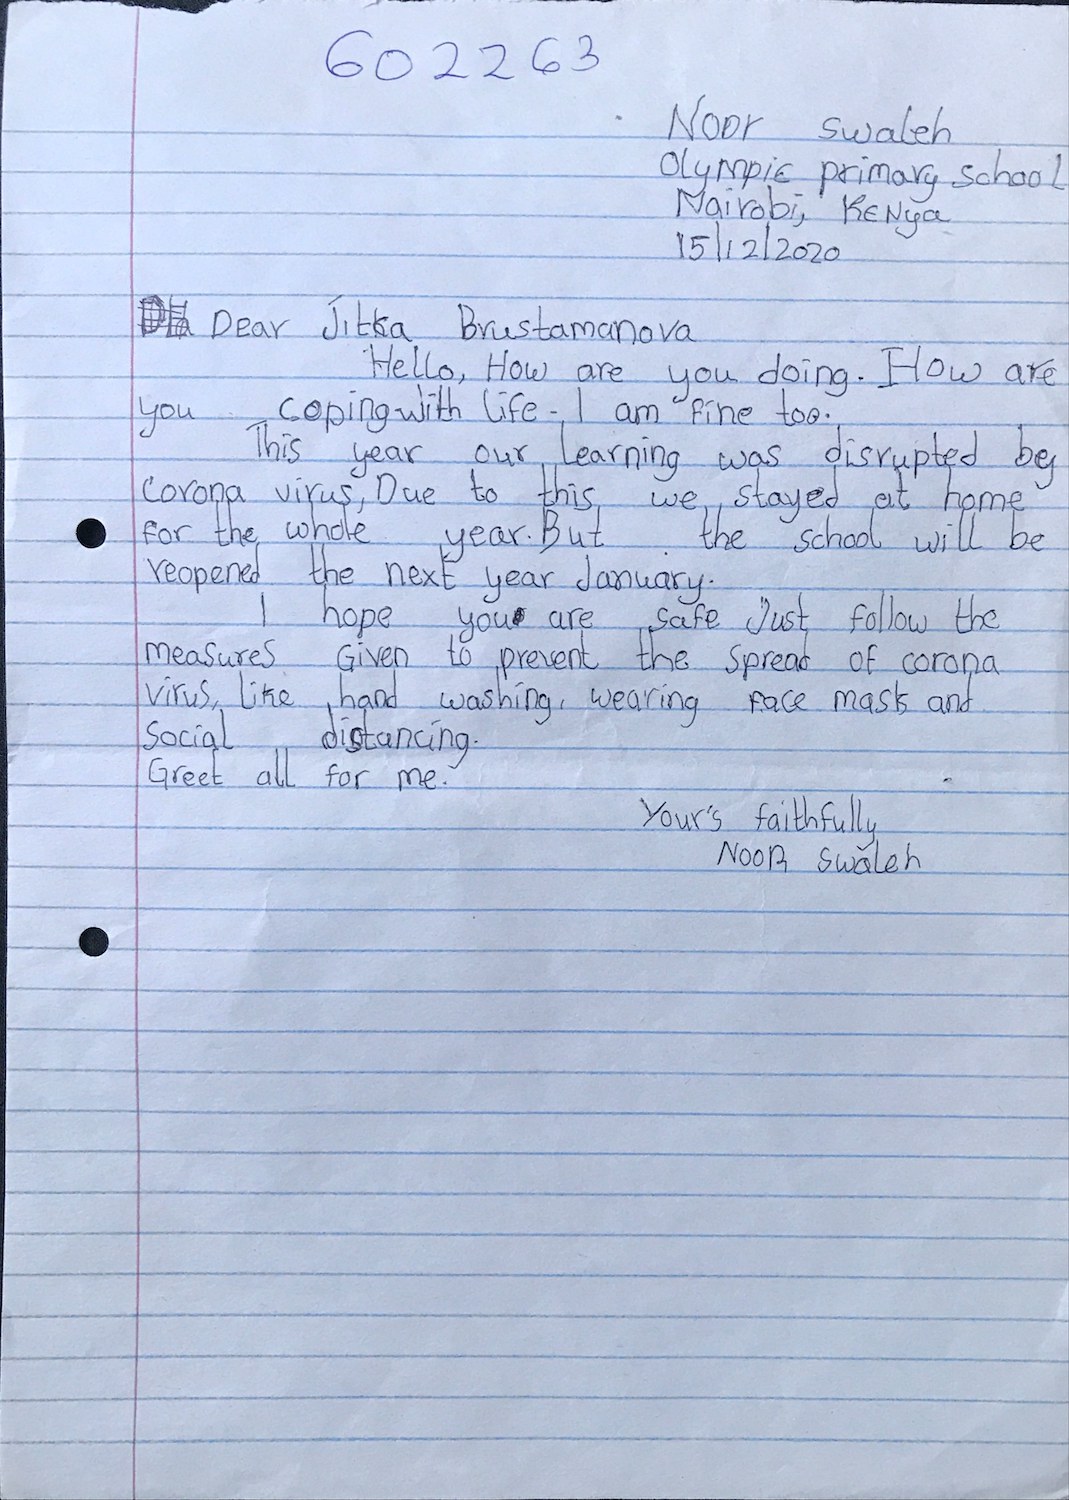 602263
Noor Swaleh
Olympic primary school
Nairobi, Kenya
15/12/2020
Dear Jitka Brustamanova
Hello, How are you doing. How are
you coping with life. I am fine too.
This year our learning was disrupted by
Corona virus, Due to this we stayed at home
for the whole year. But the school will be
reopened the next year January.
I hope you are safe Just follow the
measures Given to prevent the spread of corona
virus, like hand washing, wearing face mask and
social distancing.
Greet all for me.
Your's faithfully
Noor Swaleh